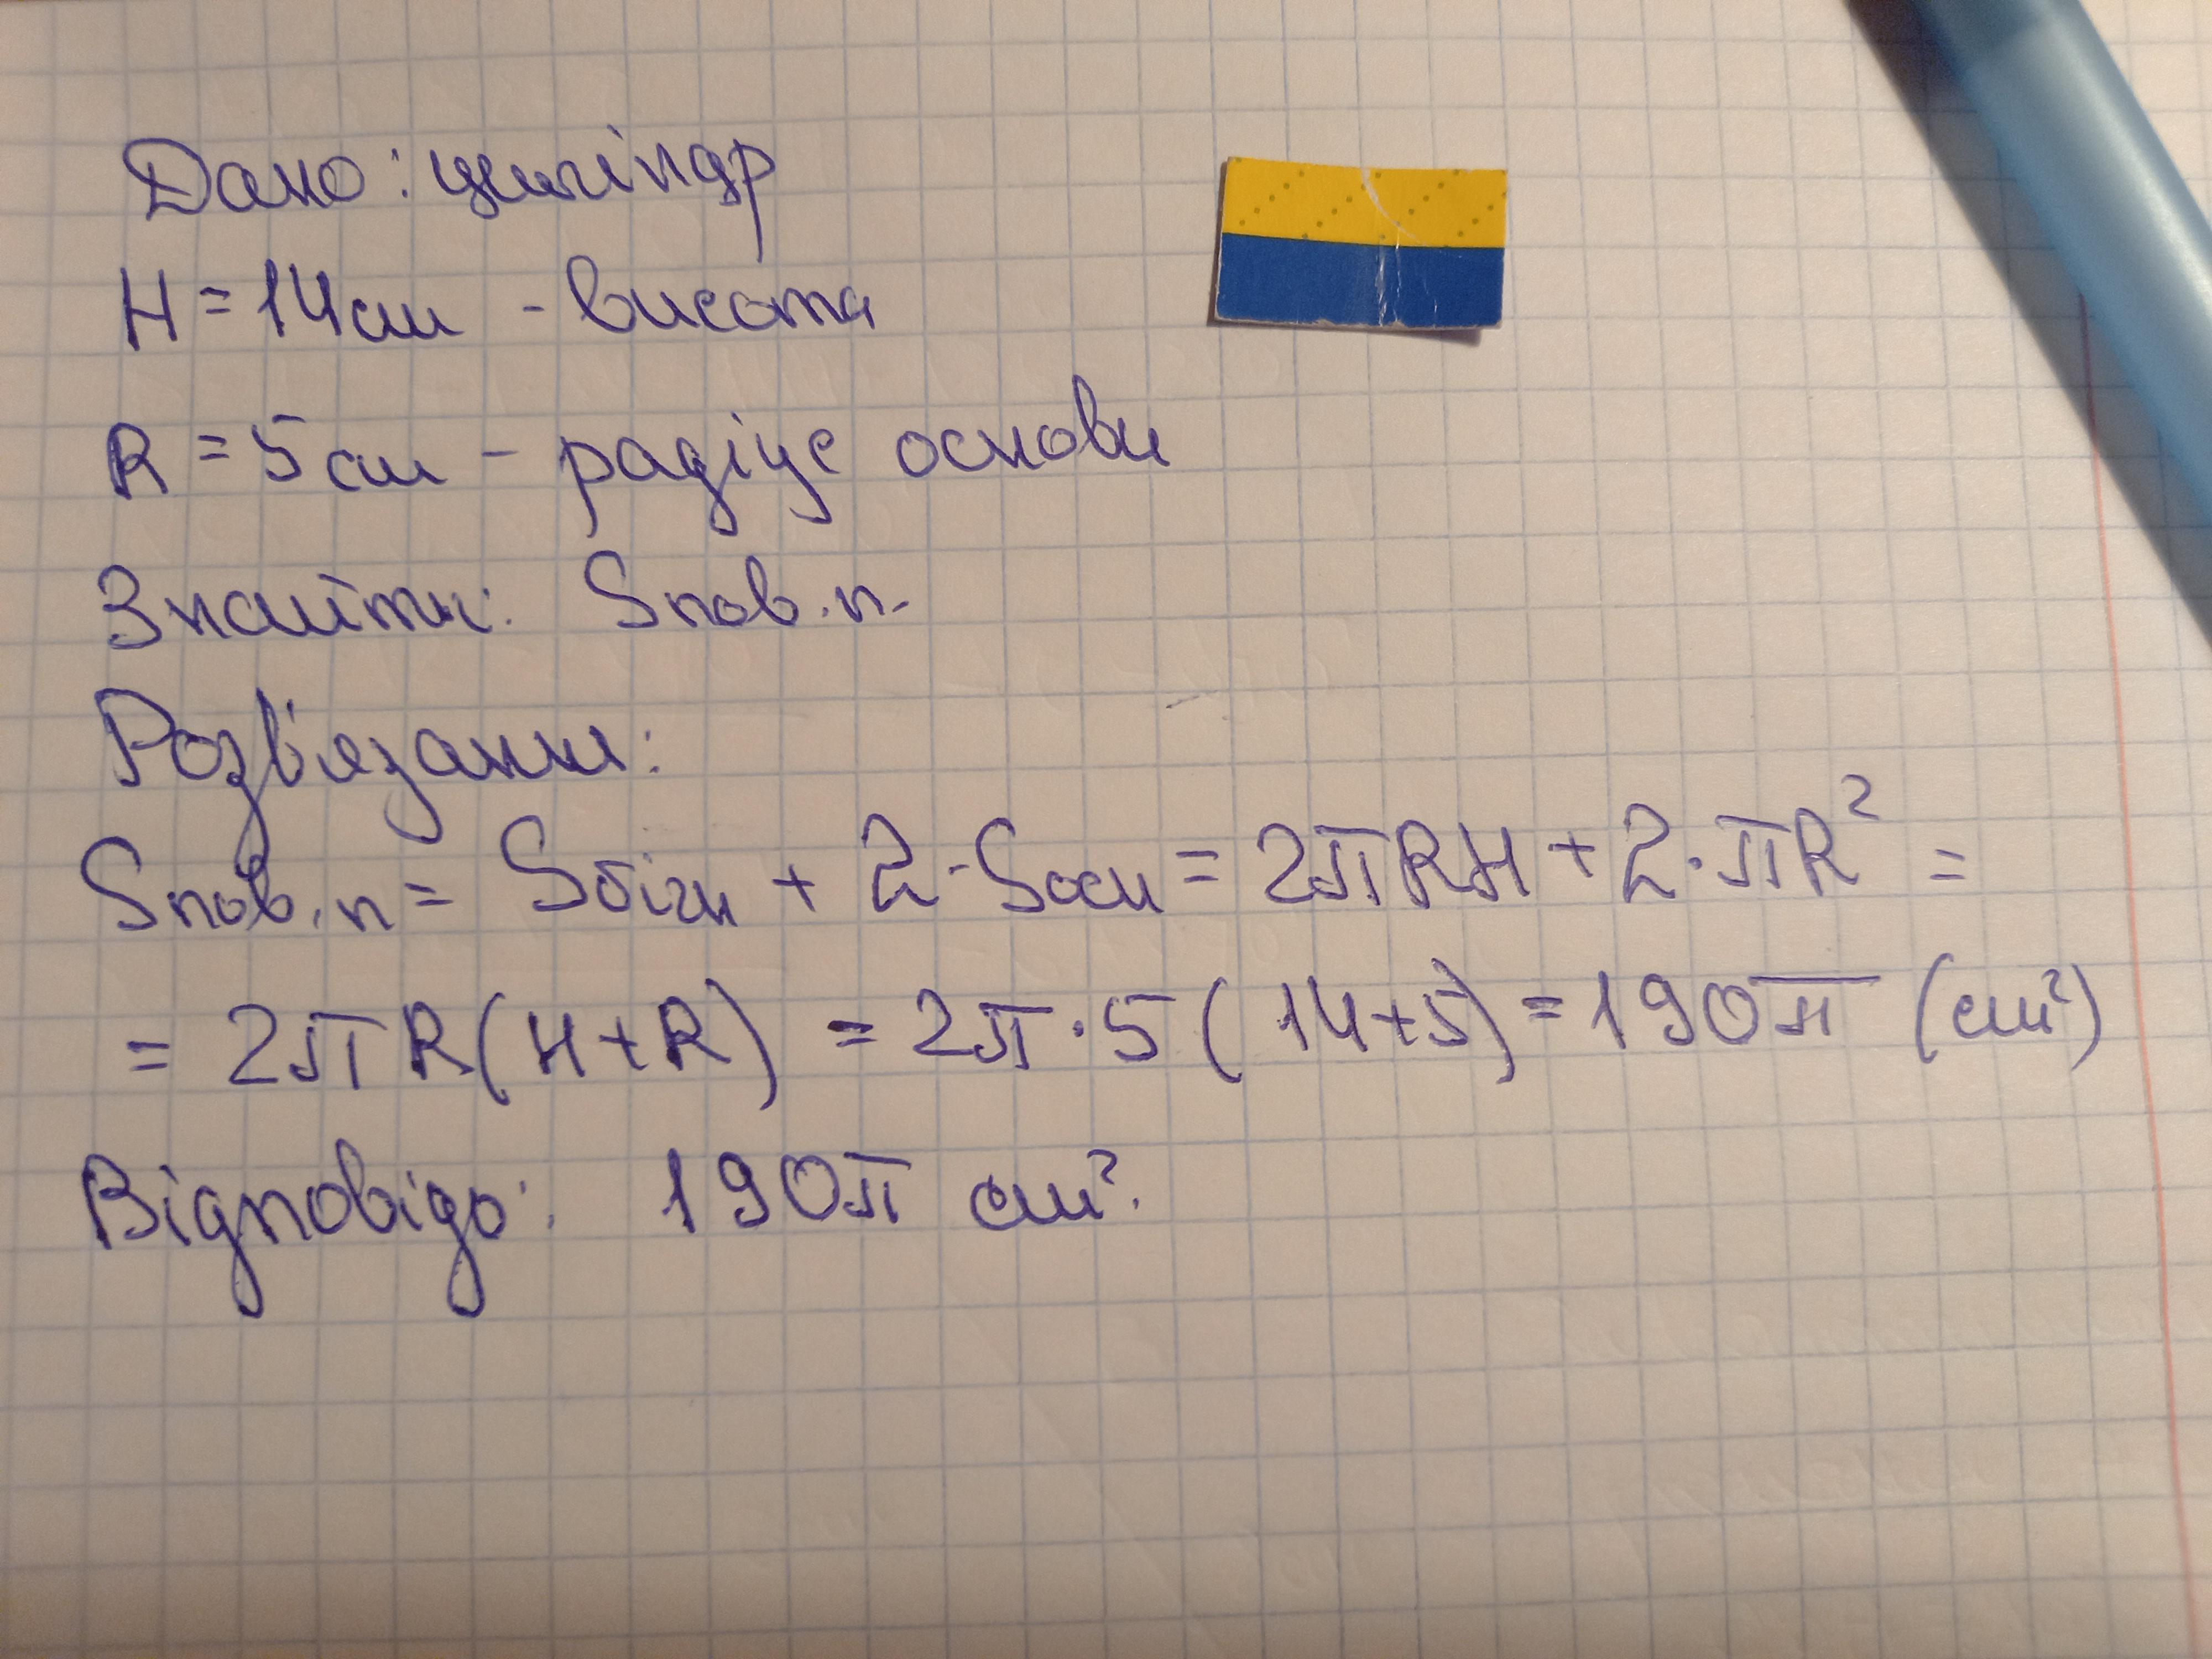 Дано: циліндр
H = 14 см - висота
R = 5 см - радіус основи
Знайти: Sпов.п.
Розв'язання:
Sпов.п = Sбічн + 2·Sосн = 2πRH + 2·πR² =
= 2πR(H+R) = 2π·5(14+5) = 190π (см²)
Відповідь: 190π см².